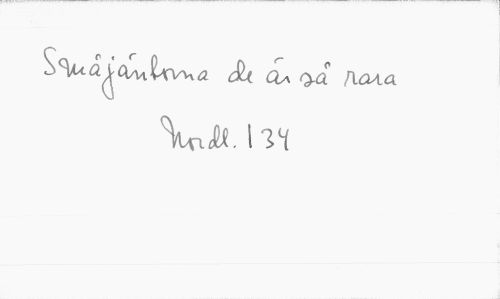 Småjäntorna de är så rara
Nordl. 134